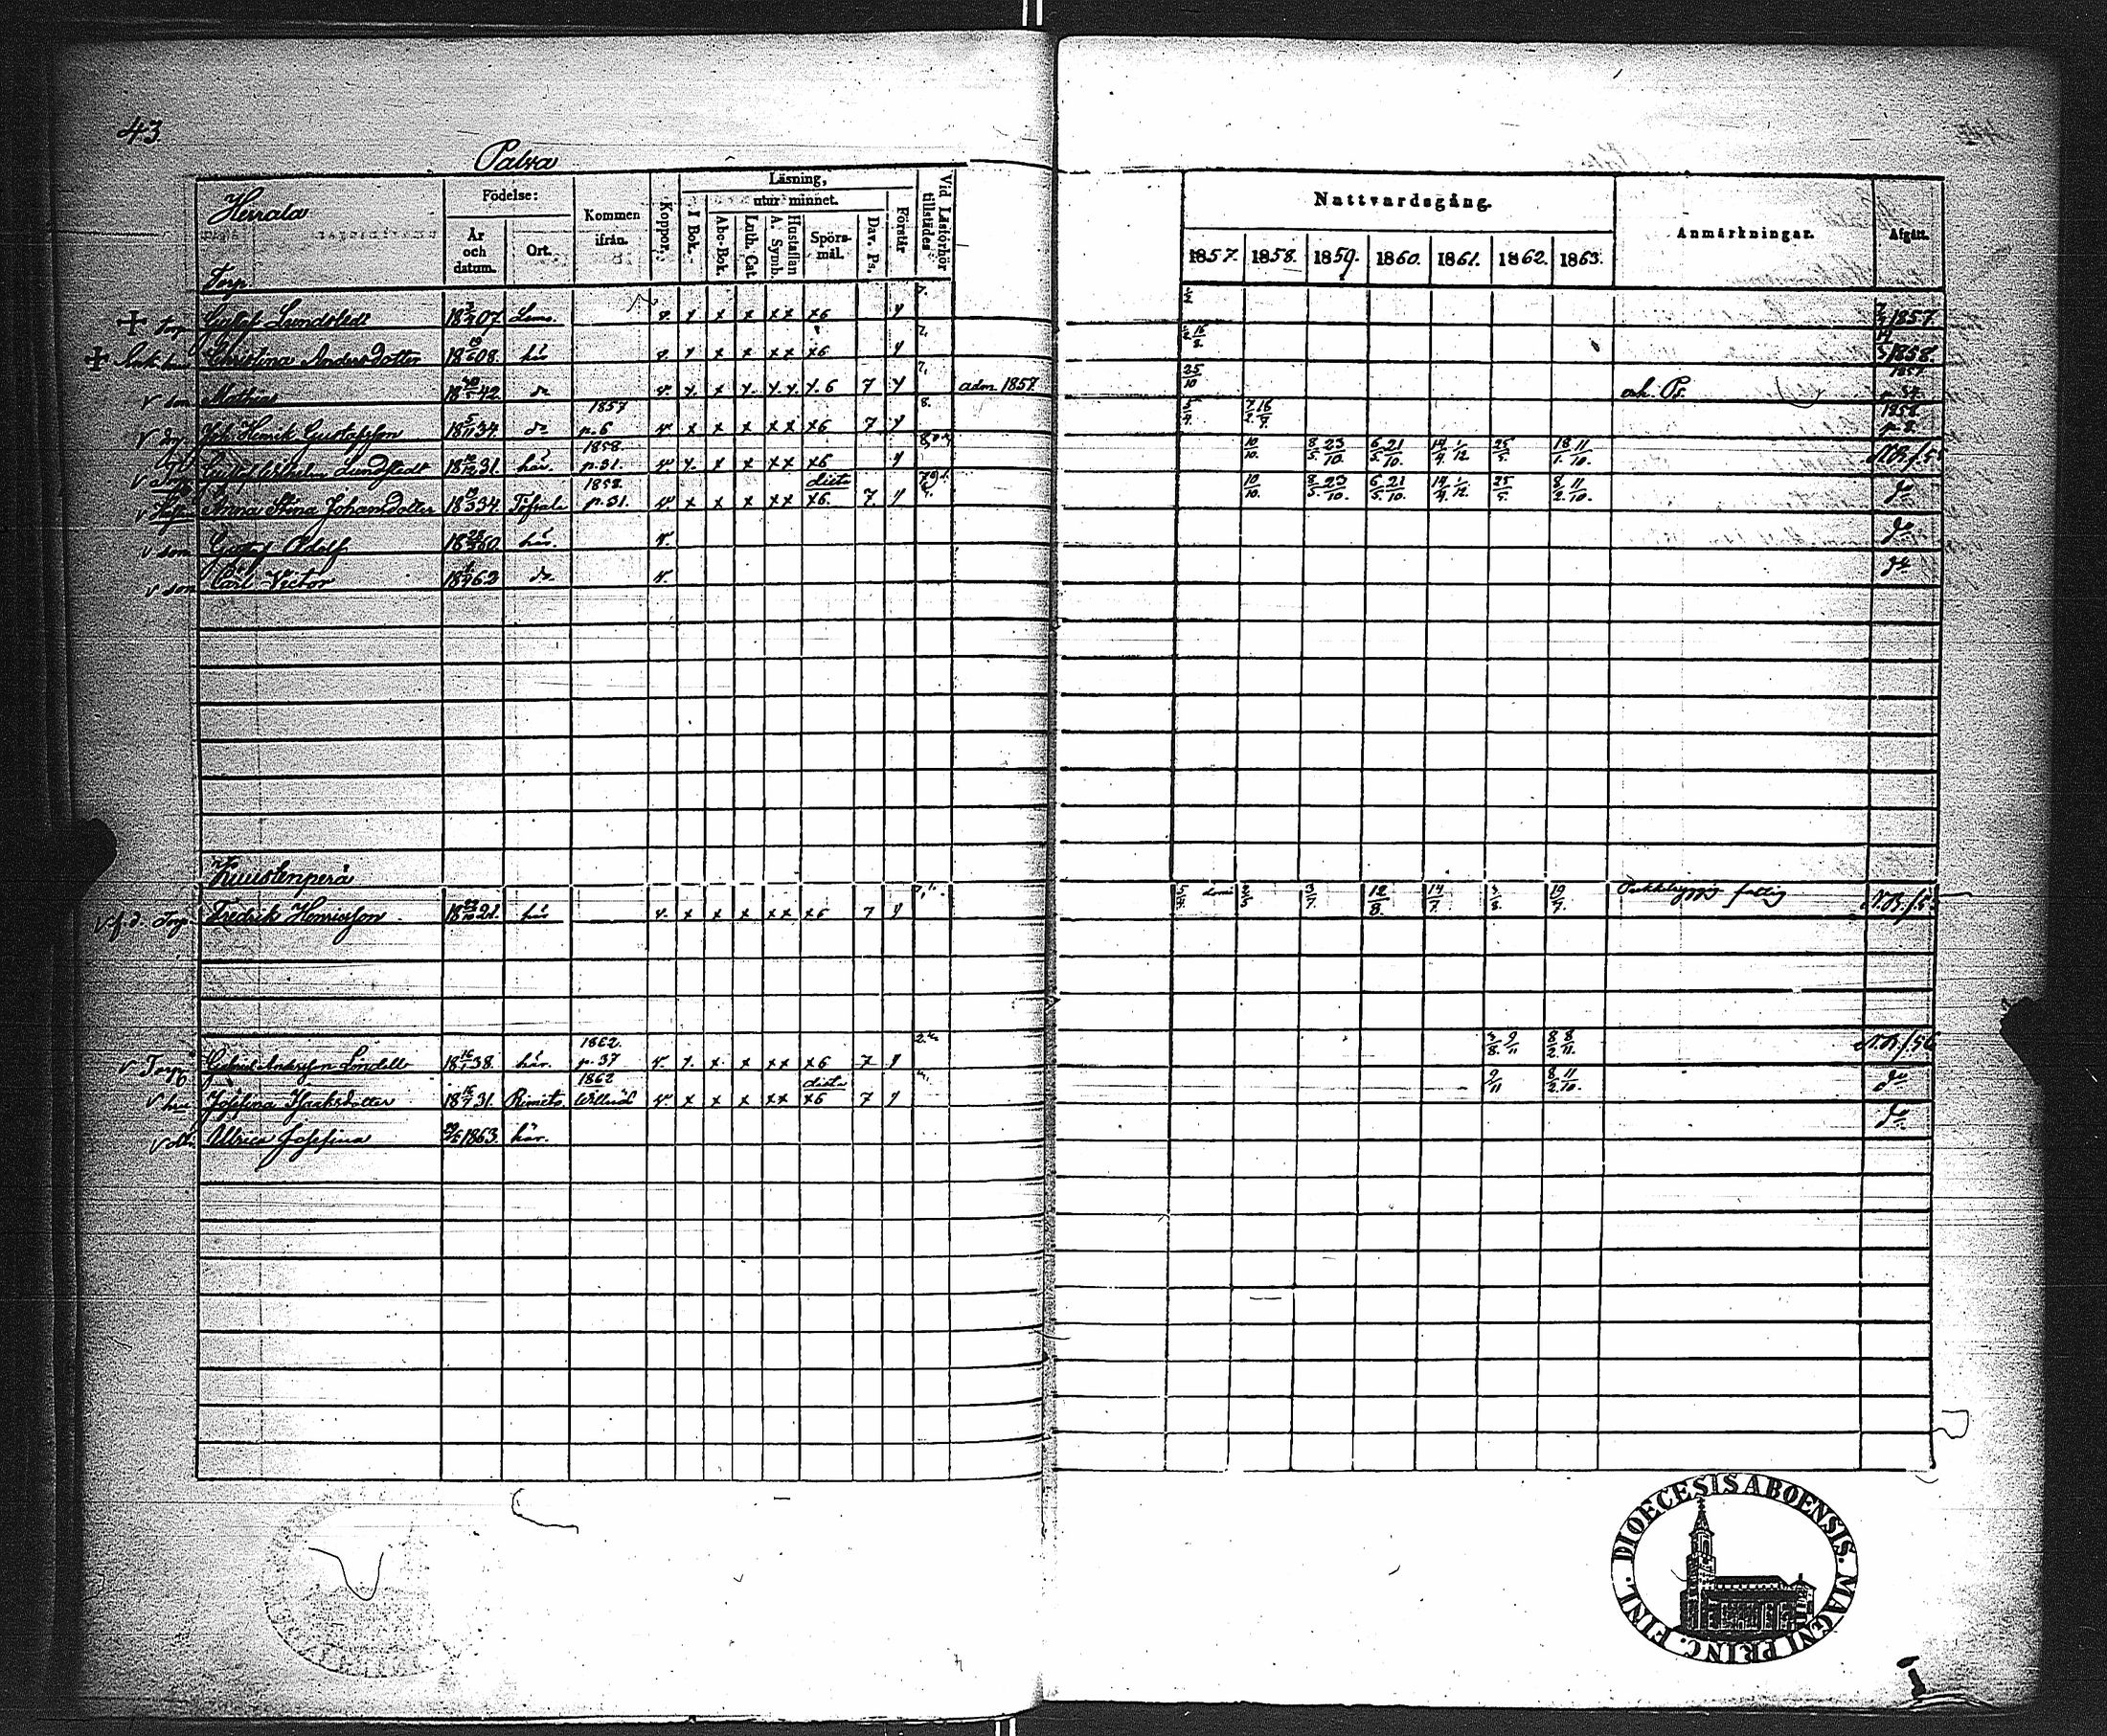 43
Palva
Herrala
Torp
Födelse:
År och datum.
Ort.
Kommen ifrån.
Koppor.
Läsning,
I Bok.
utur minnet.
Abc-Bok.
Luth. Cat.
A. Symb.
Hustaflan
Spörsmål.
Dav. Ps.
Förstår
Vid Läsförhör tillstädes
Nattvardsgång.
1857. 1858. 1859. 1860. 1861. 1862. 1863.
Anmärkningar.
Afgått.
Torp Gustaf Lundstedt 1807 Lemo. x x x x x6 1857.
Enk. hu Christina Andersdotter 1808 här x x x x x6 16/8 1858.
v son Mathias 1842 do x x x x x 6 7 adm 1857. 25/10 1857
v Joh. Henrik Gustafsson 5/11 1834. do 1857 p. 6 x x x x x6 7 8. 16/9 1858 p. 8.
v Torp Gustaf Wilhelm Lundstedt 1831. här. 1858. p. 31. x x x x x6 10/10. 8/5 23/10. 6/5 21/10. 14/4 1/12 25/5. 18/1. 11/10. N.B. / 5
v Anna Stina Johansdotter 1834 Töfsala 1858. p. 31. x x x x x6. dito 7. 10/10. 8/5 23/10. 6/5 21/10. 14/4 1/12. 25/5. 8/2 11/10. do
v son Gustaf Adolf 1860. här. do
v son Carl Victor 1862 do do
Kuustenperä
v f.d. Torp. Fredrik Henricsson 1821. här x x x x x x6 7 12/8. 14/7. 19/7. Puckelryggig fattig N.B. / 5
v Torp Gabriel Andersson Lindell 16/1 1838. här. 1862. p. 37 x x x x x6 7 3/8 9/11 8/2 8/11. N.B. / 56
v hu Josefina Isaksdotter 1831. Rimito. 1862 Willnäs x x x x x x6 dito 7 9/11 8/2 11/10. do
v dtr Ulrica Josefina 1863. här. do
DIOECESIS ABOENSIS. MAGNI PRINC. FINL.